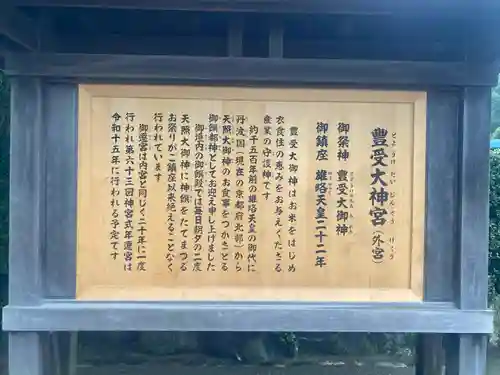 豊受大神宮（外宮）
とようけだいじんぐう げくう
御祭神 豊受大御神
御鎮座 雄略天皇二十二年
豊受大御神はお米をはじめ
衣食住の恵みをお与えくださる
産業の守護神です
約千五百年前の雄略天皇の御代に
丹波国（現在の京都府北部）から
天照大御神のお食事をつかさどる
御饌都神としてお迎え申し上げました
御垣内の御饌殿では毎日朝夕の二度
天照大御神に神饌をたてまつる
お祭りがご鎮座以来絶えることなく
行われています
御遷宮は内宮と同じく二十年に一度
行われ第六十三回神宮式年遷宮は
令和十五年に行われる予定です